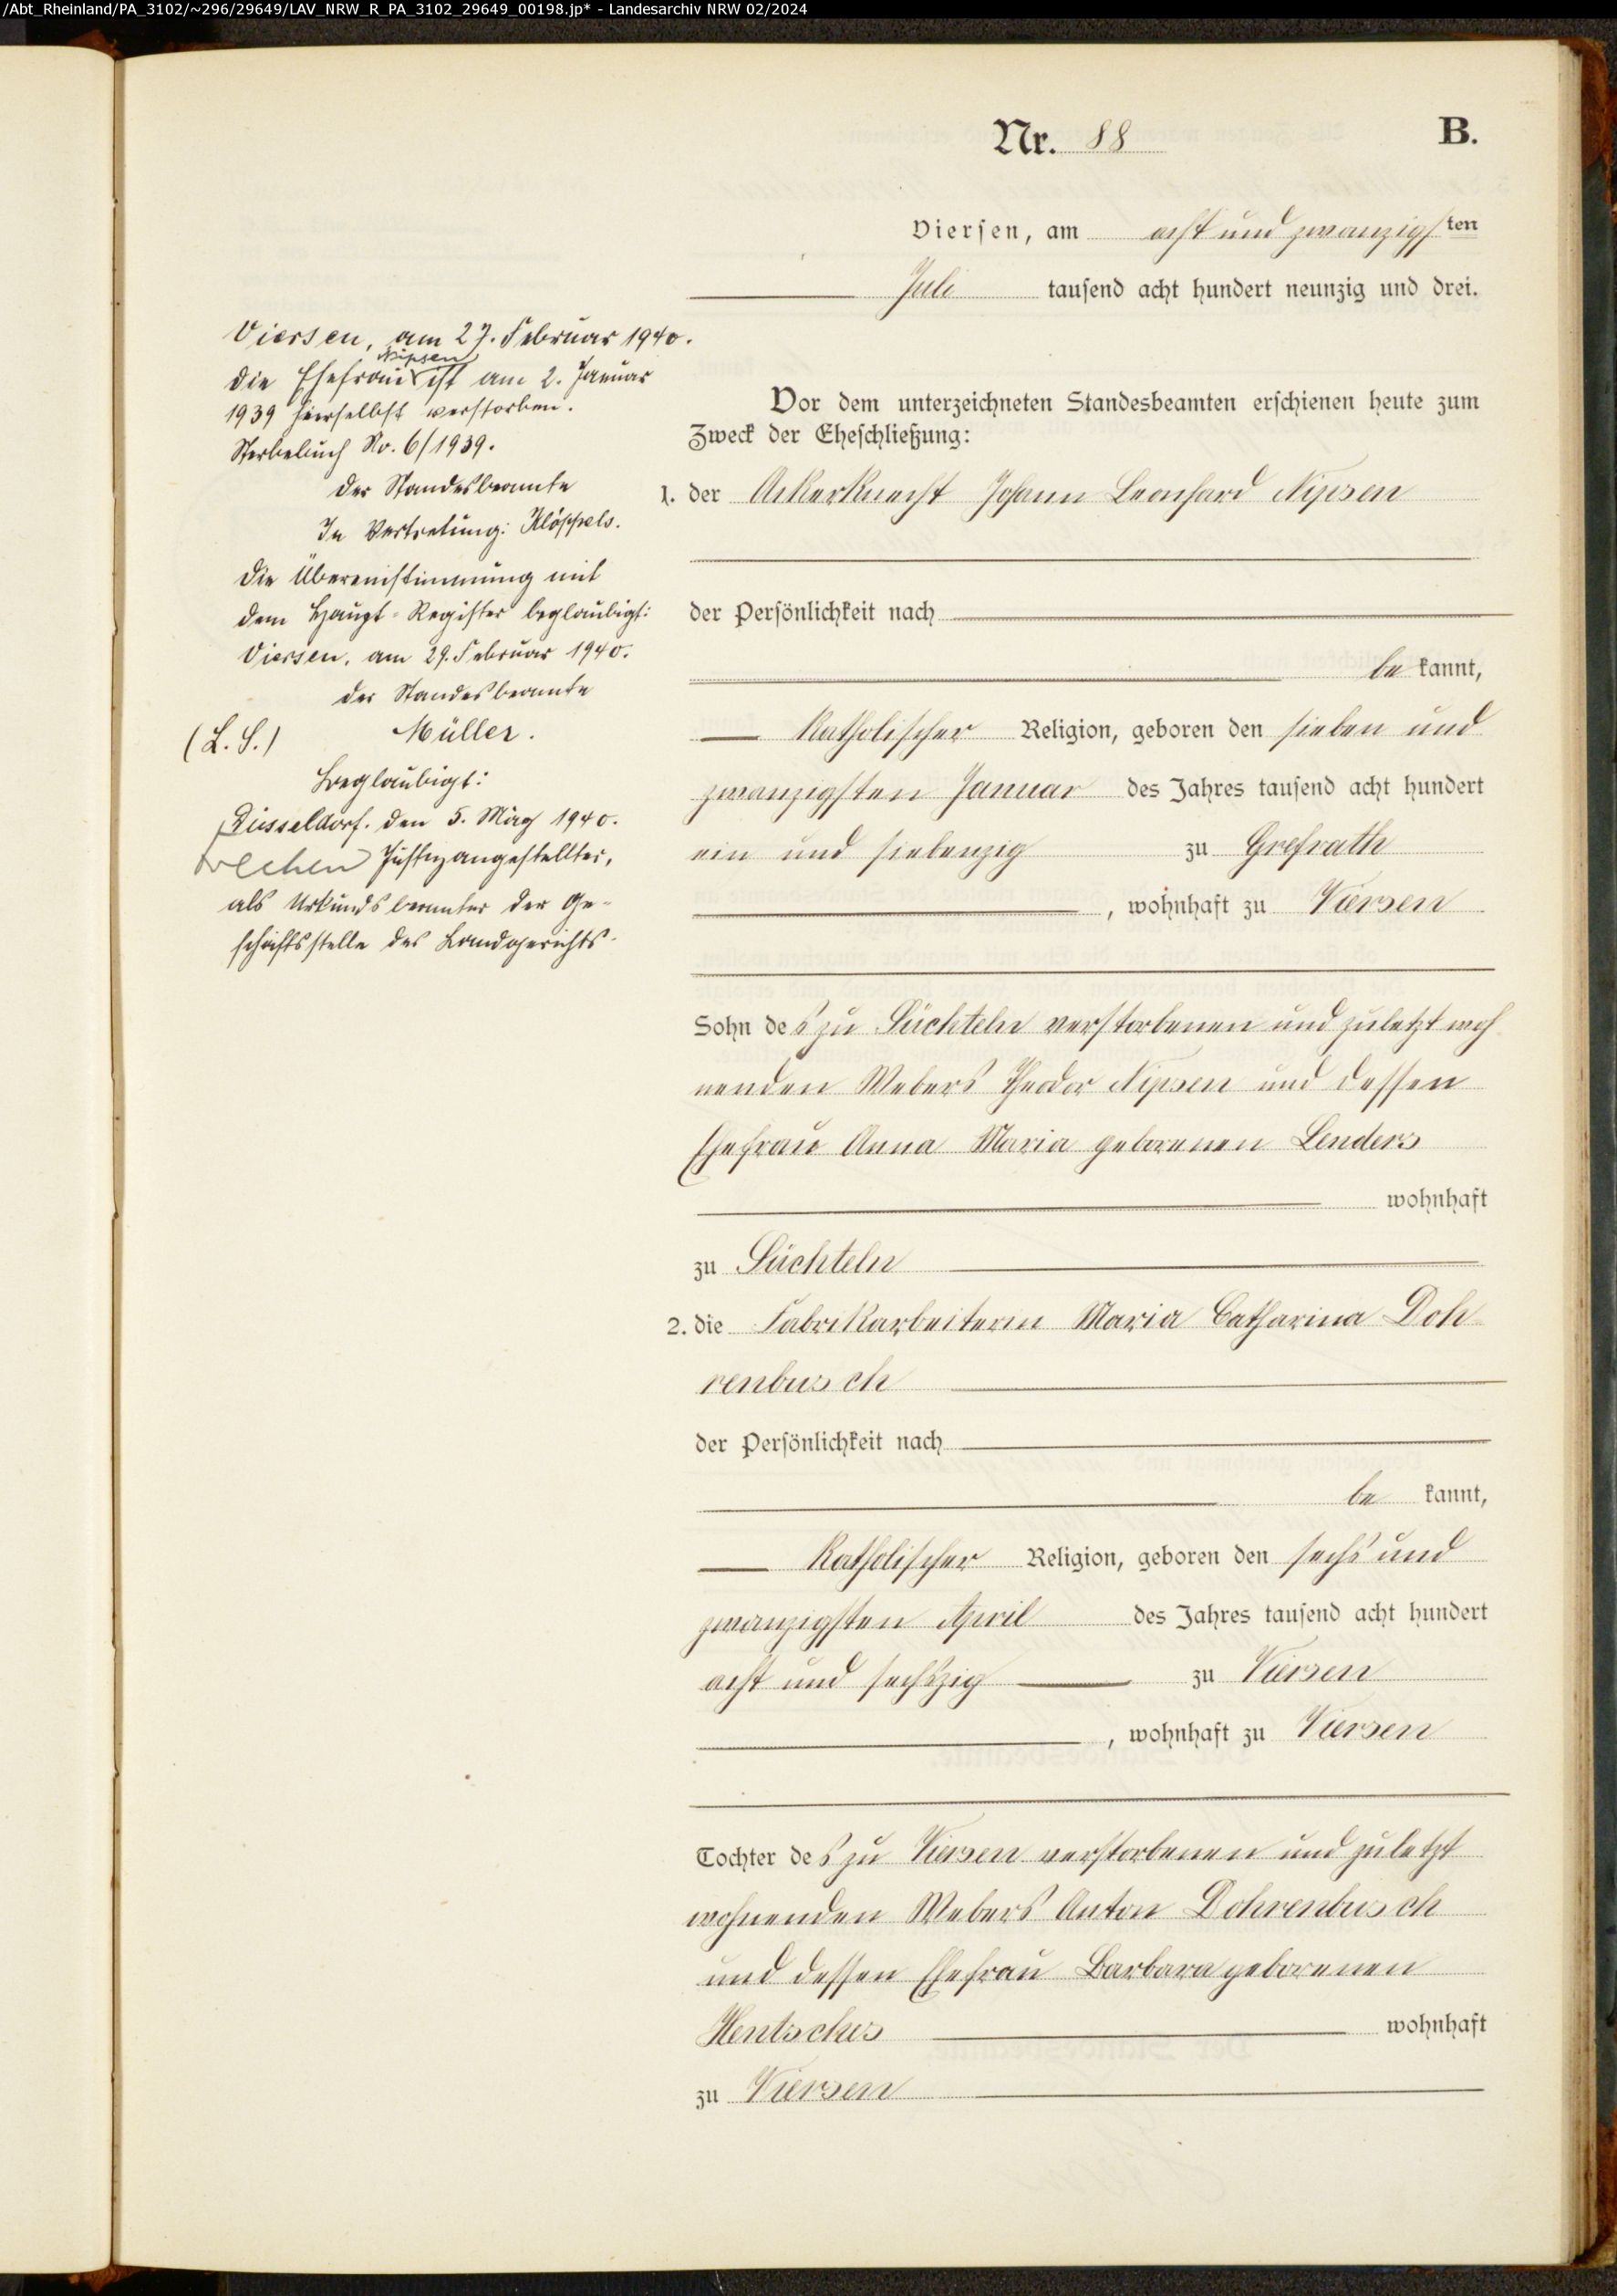 /Abt_Rheinland/PA_3102/~296/29649/LAV_NRW_R_PA_3102_29649_00198.jp* - Landesarchiv NRW 02/2024
Nr. 88
B.
Viersen, am acht und zwanzigsten
Juli tausend acht hundert neunzig und drei.
Vor dem unterzeichneten Standesbeamten erschienen heute zum
Zweck der Eheschließung:
1. der Ackerknecht Johann Leonhard Nipsen
der Persönlichkeit nach
be kannt,
katholischer Religion, geboren den sieben und
zwanzigsten Januar des Jahres tausend acht hundert
ein und siebenzig zu Grefrath
, wohnhaft zu Viersen
Sohn des zu Süchteln verstorbenen und zuletzt woh
nenden Webers Theodor Nipsen und dessen
Ehefrau Anna Maria geborenen Lenders
wohnhaft
zu Süchteln
2. die Fabrikarbeiterin Maria Catharina Doh
renbusch
der Persönlichkeit nach
be kannt,
katholischer Religion, geboren den sechs und
zwanzigsten April des Jahres tausend acht hundert
acht und sechszig zu Viersen
, wohnhaft zu Viersen
Tochter des zu Viersen verstorbenen und zuletzt
wohnenden Webers Anton Dohrenbusch
und dessen Ehefrau Barbara geborenen
Hentsches wohnhaft
zu Viersen
Viersen, am 27. Februar 1940.
Nipsen
Die Ehefrau ist am 2. Januar
1939 hierselbst verstorben.
Sterbebuch No. 6/1939.
Der Standesbeamte
In Vertretung: Klöppels.
Die Übereinstimmung mit
dem Haupt-Register beglaubigt:
Viersen, am 29. Februar 1940.
Der Standesbeamte
(L. S.) Müller.
Beglaubigt:
Düsseldorf. den 5. März 1940.
Justizangestellter,
als Urkundsbeamter der Ge-
schäftsstelle des Landgerichts.